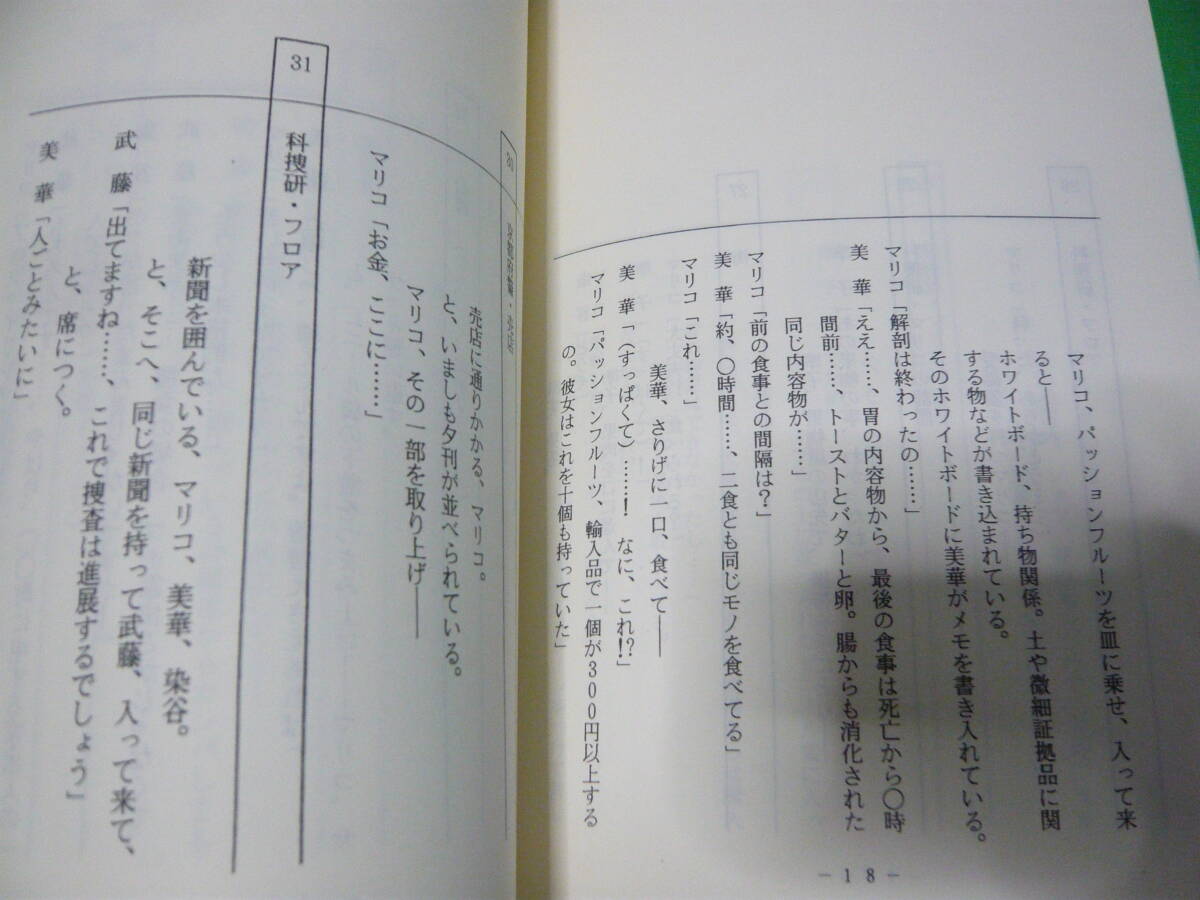 マリコ、パッションフルーツを皿に乗せ、入って来
ると――
ホワイトボード、持ち物関係。土や微細証拠品に関
する物などが書き込まれている。
そのホワイトボードに美華がメモを書き入れている。
マリコ「解剖は終わったの……」
美　華「ええ……、胃の内容物から、最後の食事は死亡から〇時
間前……、トーストとバターと卵。腸からも消化された
同じ内容物が……」
マリコ「前の食事との間隔は？」
美　華「約、〇時間……、二食とも同じモノを食べてる」
マリコ「これ……」
美華、さりげに一口、食べて――
美　華「（すっぱくて）……！　なに、これ!?」
マリコ「パッションフルーツ、輸入品で一個が３００円以上する
の。彼女はこれを十個も持っていた」
－18－
30
売店
売店に通りかかる、マリコ。
と、いましも夕刊が並べられている。
マリコ、その一部を取り上げ――
マリコ「お金、ここに……」
31
科捜研・フロア
新聞を囲んでいる、マリコ、美華、染谷。
と、そこへ、同じ新聞を持って武藤、入って来て、
武　藤「出てますね……、これで捜査は進展するでしょう」
と、席につく。
美　華「人ごとみたいに」